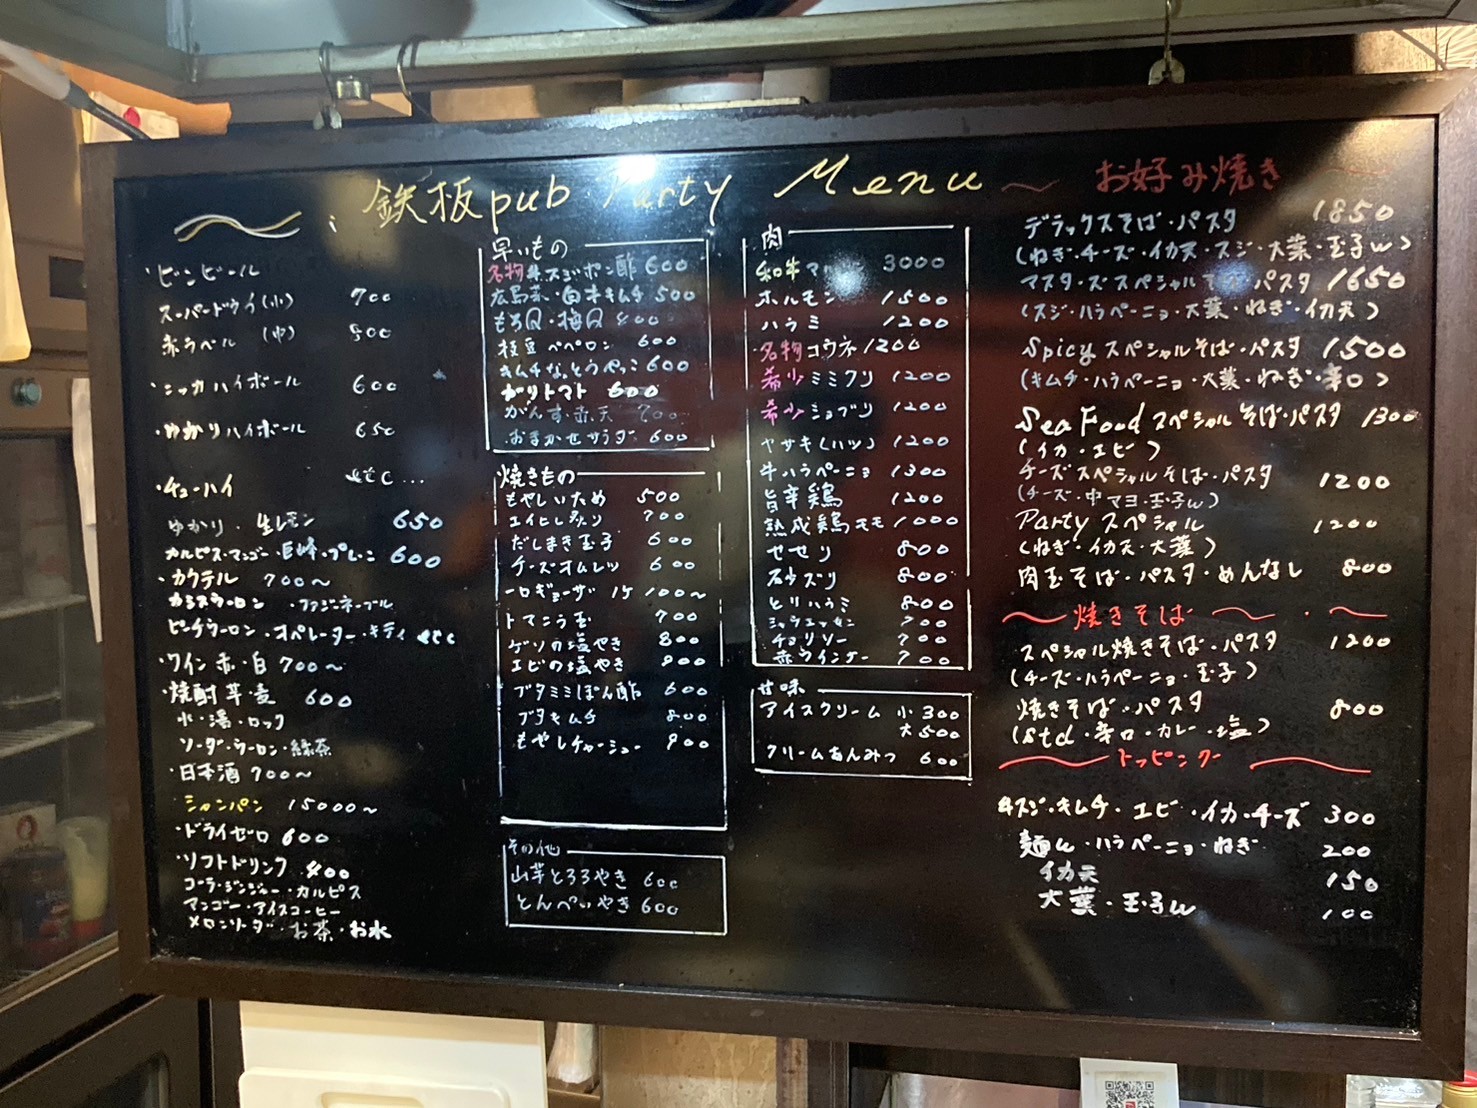 鉄板pub Party Menu
・ビンビール
スーパードライ(小) 700
赤ラベル (中) 800
・ニッカハイボール 600
・ゆかりハイボール 650
・チューハイ etc...
ゆかり・生レモン 650
カルピス・マンゴー・巨峰・プレーン 600
・カクテル 700～
カシスウーロン ・ファジーネーブル
ピーチウーロン・オペレーター・キティ etc
・ワイン 赤・白 700～
・焼酎 芋・麦 600
水・湯・ロック
ソーダ・ウーロン・緑茶
・日本酒 700～
シャンパン 15000～
・ドライゼロ 600
・ソフトドリンク 400
コーラ・ジンジャー・カルピス
マンゴー・アイスコーヒー
メロンソーダ・お茶・お水
早いもの
名物牛スジポン酢 600
広島菜・白才キムチ 500
もろQ・梅Q 400
枝豆ペペロン 600
キムチなっとうやっこ 600
ガリトマト 600
がんす・赤天 700
おまかせサラダ 600
焼きもの
もやしいため 500
エイヒレ炙り 700
だしまき玉子 600
チーズオムレツ 600
一口ギョーザ 1ケ 100～
トマニラ玉 700
ゲソの塩やき 800
エビの塩やき 900
ブタミミぽん酢 600
ブタキムチ 800
もやしチャーシュー 900
その他
山芋とろろやき 600
とんぺいやき 600
肉
和牛 3000
ホルモン 1500
ハラミ 1200
名物コウネ 1200
希少ミミクリ 1200
希少ショブリ 1200
ヤサキ(ハツ) 1200
牛ハラペーニョ 1300
旨辛鶏 1200
熟成鶏モモ 1000
せせり 800
砂ズリ 800
とりハラミ 800
シャウエッセン 700
チョリソー 700
赤ウインナー 700
甘味
アイスクリーム 小 300
大 500
クリームあんみつ 600
～ お好み焼き ～
デラックスそば・パスタ 1850
(ねぎ・チーズ・イカ天・スジ・大葉・玉子W)
マスターズスペシャルそば・パスタ 1650
(スジ・ハラペーニョ・大葉・ねぎ・イカ天)
Spicyスペシャルそば・パスタ 1500
(キムチ・ハラペーニョ・大葉・ねぎ・辛口)
Sea Foodスペシャルそば・パスタ 1300
(イカ・エビ)
チーズスペシャルそば・パスタ 1200
(チーズ・中マヨ・玉子W)
Partyスペシャル 1200
(ねぎ・イカ天・大葉)
肉玉そば・パスタ・めんなし 800
～ 焼きそば ～ ・～
スペシャル焼きそば・パスタ 1200
(チーズ・ハラペーニョ・玉子)
焼きそば・パスタ 800
(std・辛口・カレー・塩)
～トッピング～
牛スジ・キムチ・エビ・イカ・チーズ 300
麺W・ハラペーニョ・ねぎ 200
イカ天 150
大葉・玉子W 100